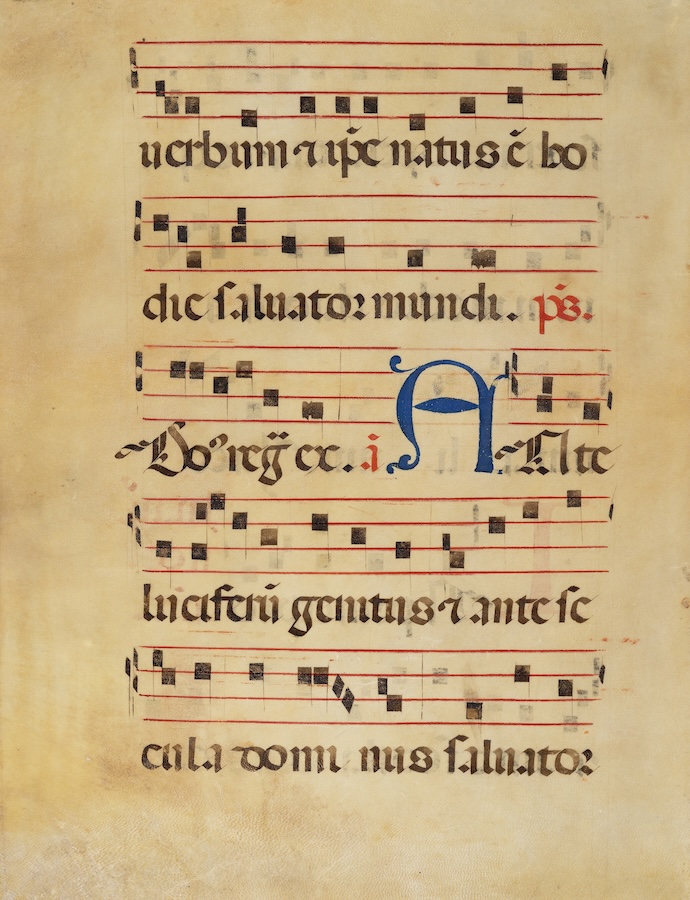 uerbum ⁊ ip̄e natus ē ho
die saluator mundi. p̄s.
Do⁹ reg̈ ex. ā Ante
luciferū genitus ⁊ ante se
cula domi nus saluator